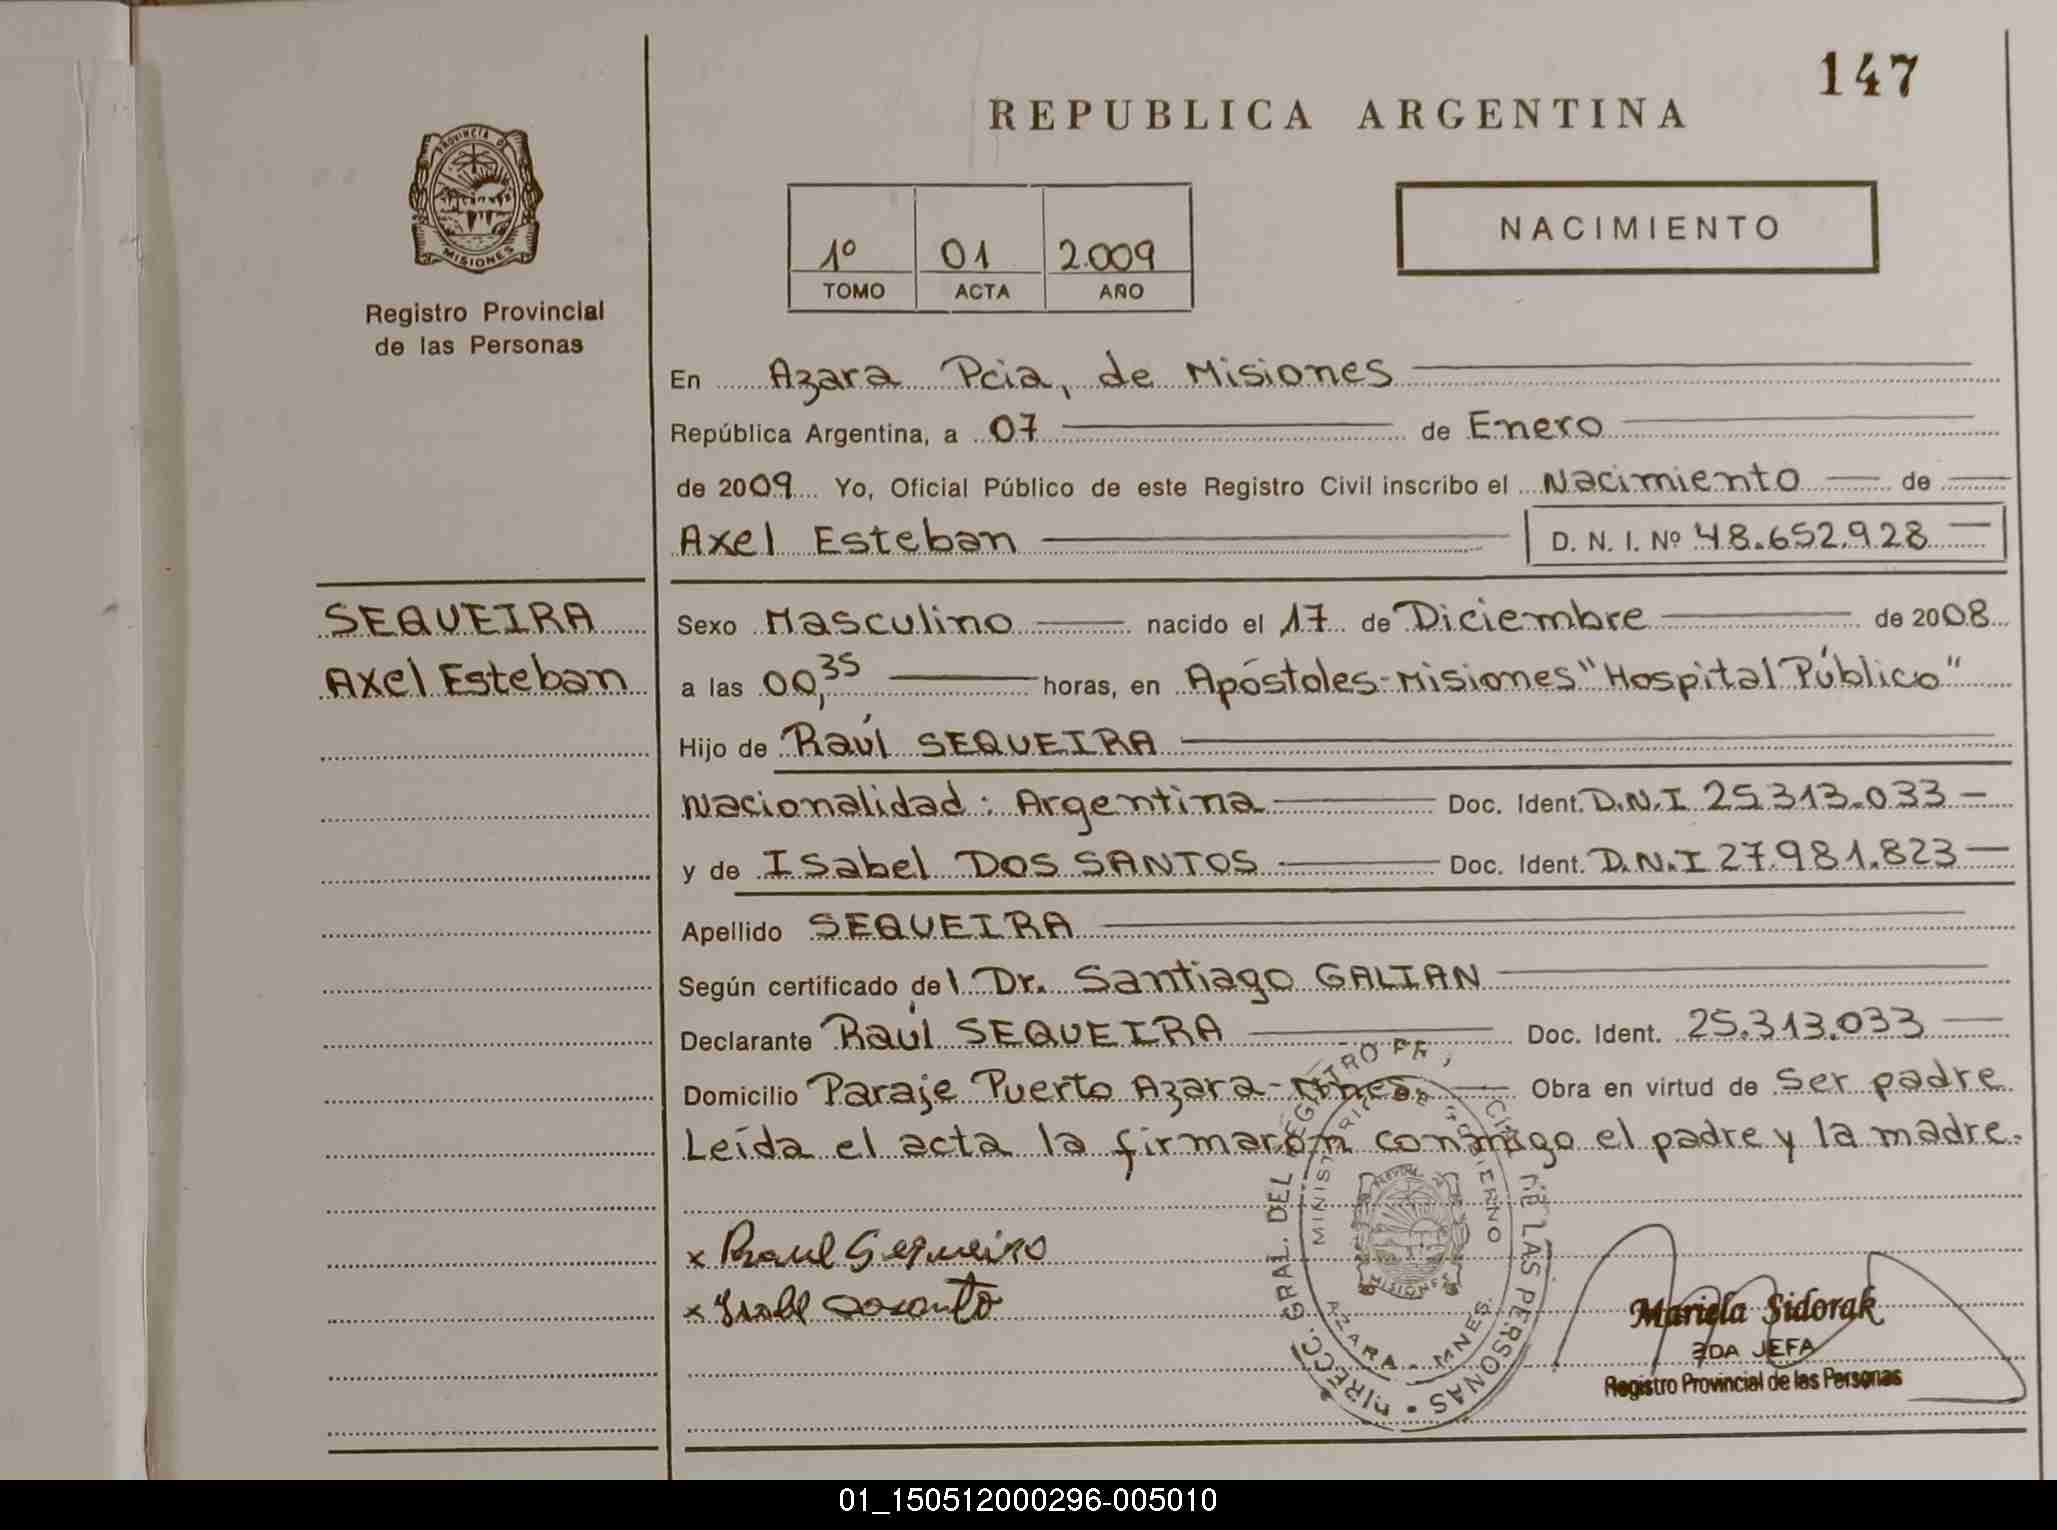 147
REPUBLICA ARGENTINA
PROVINCIA DE
MISIONES
Registro Provincial
de las Personas
1º 01 2.009
TOMO ACTA AÑO
NACIMIENTO
En Azara Pcia, de Misiones
República Argentina, a 07 de Enero
de 2009 Yo, Oficial Público de este Registro Civil inscribo el Nacimiento de
Axel Esteban D. N. I. Nº 48.652.928
SEQUEIRA
Axel Esteban
Sexo Masculino nacido el 17 de Diciembre de 2008
a las 00,35 horas, en Apóstoles-Misiones "Hospital Público"
Hijo de Raúl SEQUEIRA
Nacionalidad: Argentina Doc. Ident. D.N.I 25.313.033
y de Isabel DOS SANTOS Doc. Ident. D.N.I 27.981.823
Apellido SEQUEIRA
Según certificado del Dr. Santiago GALIAN
Declarante Raúl SEQUEIRA Doc. Ident. 25.313.033
Domicilio Paraje Puerto Azara-Mnes. Obra en virtud de Ser padre
Leída el acta la firmarón conmigo el padre y la madre.
x Raul Sequeira
x Isabel
DIRECC. GRAL. DEL REGISTRO DE LAS PERSONAS
MINISTERIO DE GOBIERNO
MISIONES
AZARA - MNES.
Mariela Sidorak
2DA JEFA
Registro Provincial de las Personas
01_150512000296-005010